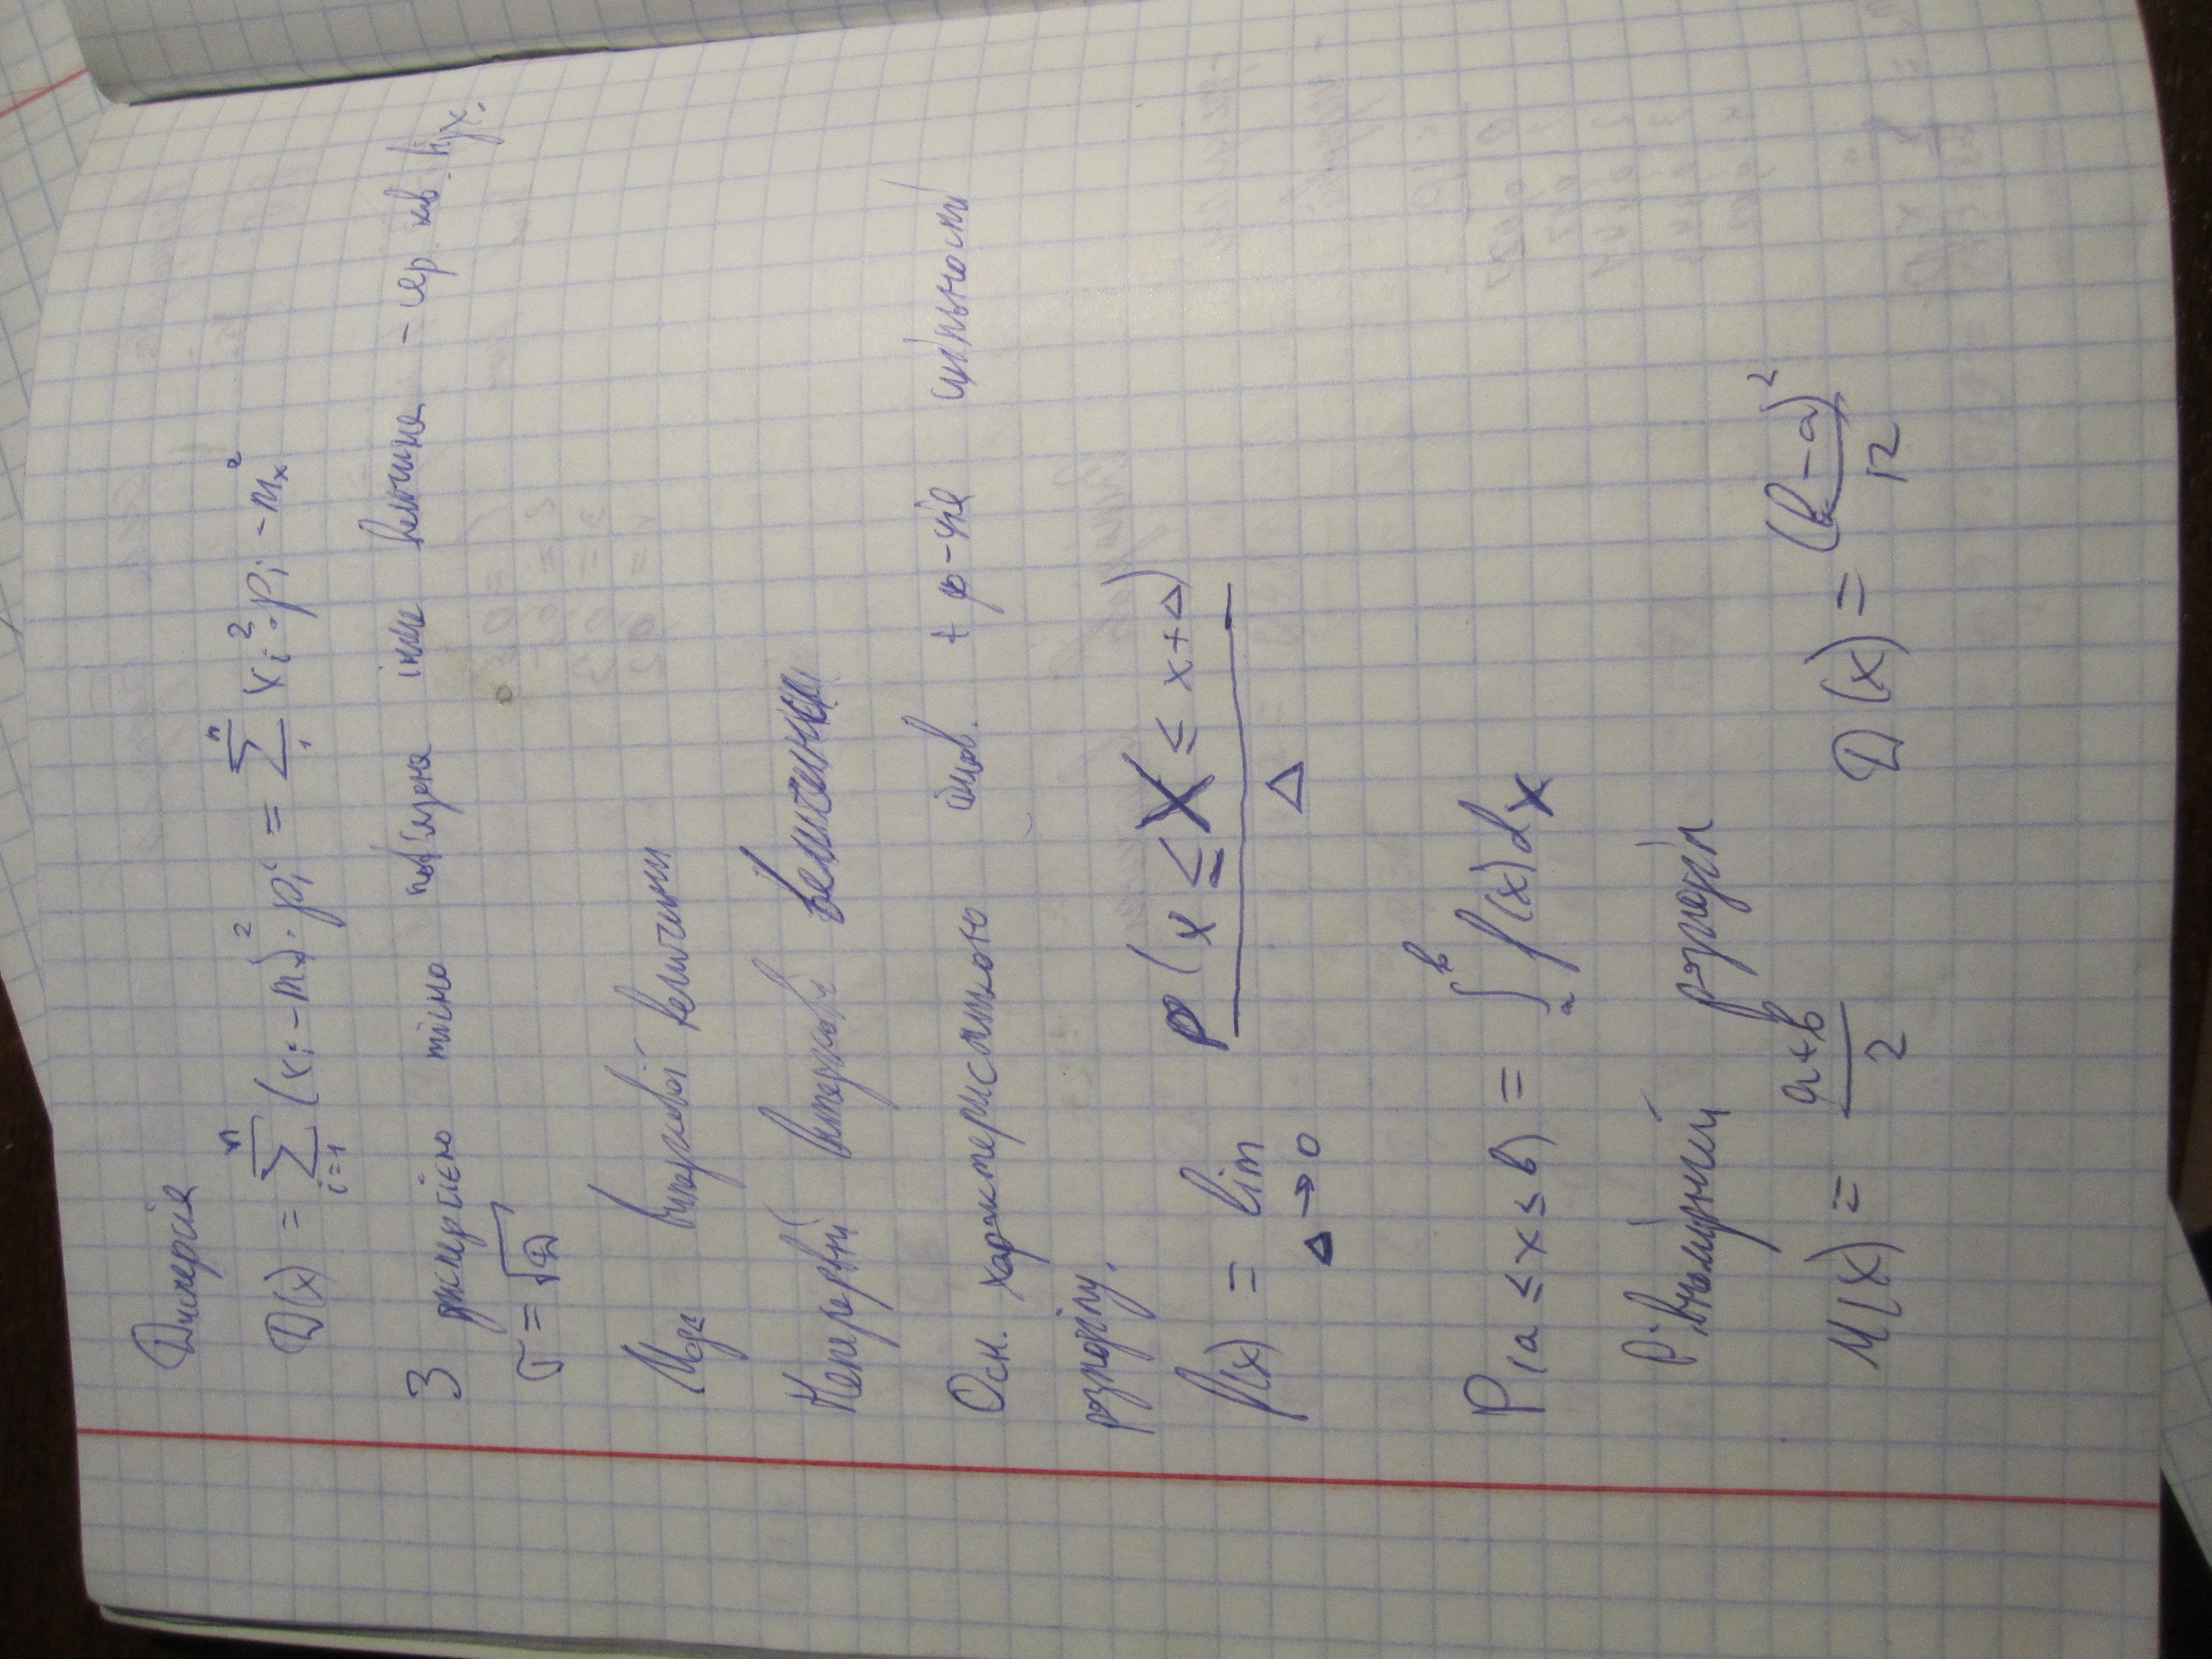 Дисперсія
D(x) = ∑_{i=1}^{n} (x_i - m_x)^2 · p_i = ∑_{1}^{n} x_i^2 · p_i - m_x^2
З дисперсією тісно пов'язана інша величина - сер. кв. відх.
σ = √D
Мода випадкової величини
Неперервні випадкові величини
Осн. характеристикою ймов. є ф-ція щільності
розподілу.
f(x) = lim_{Δ→0} p(x ≤ X ≤ x+Δ) / Δ
P(a ≤ x ≤ b) = ∫_a^b f(x)dx
Рівномірний розподіл
M(x) = (a+b)/2 D(x) = (b-a)^2/12